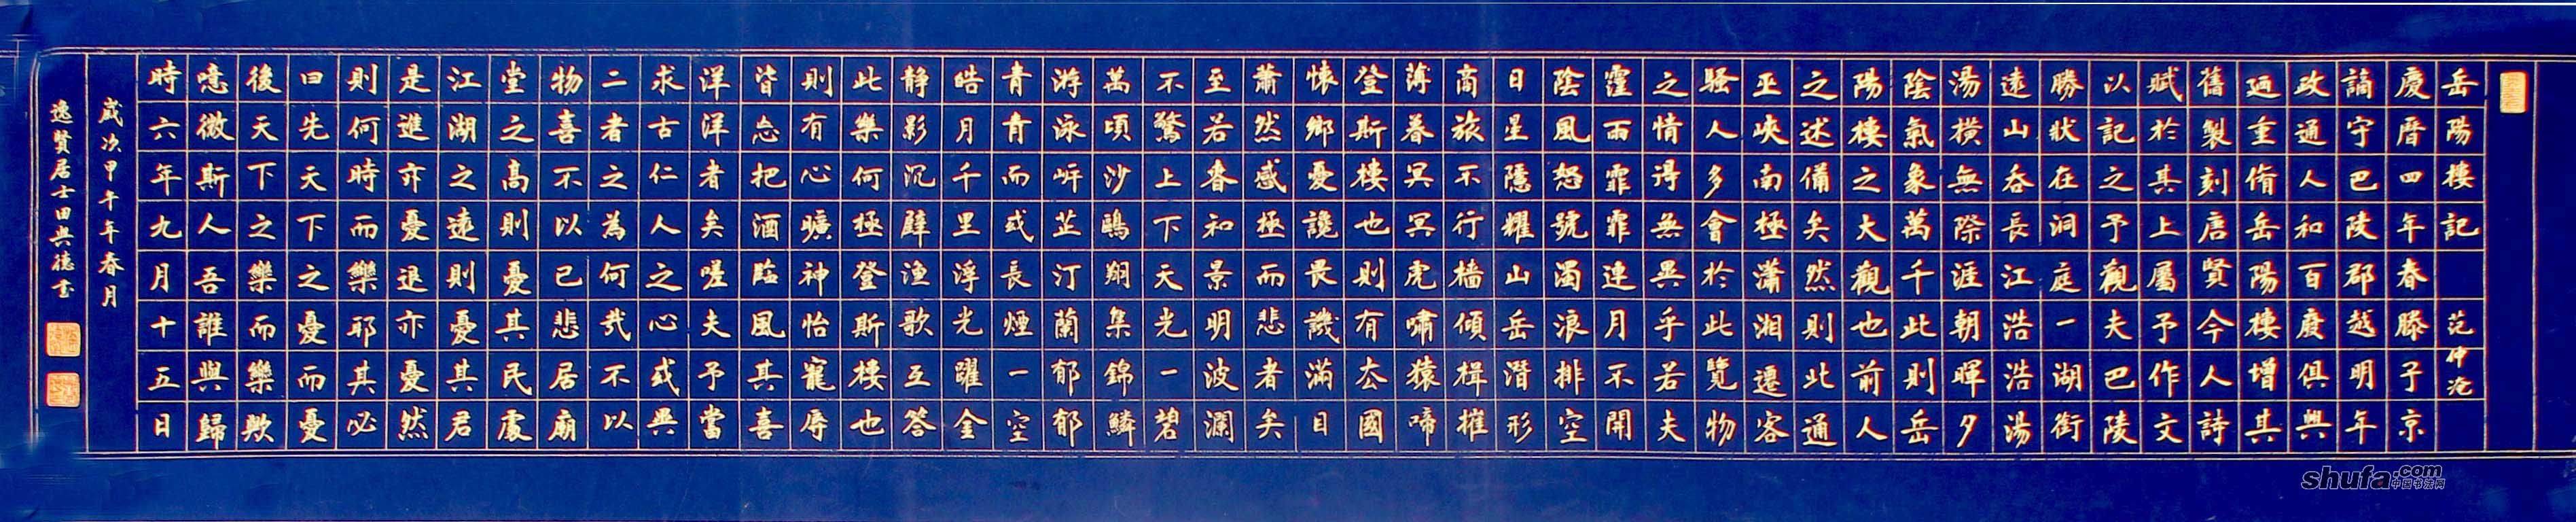 岳陽樓記 范仲淹
慶曆四年春滕子京
謫守巴陵郡越明年
政通人和百廢俱興
廼重脩岳陽樓增其
舊製刻唐賢今人詩
賦於其上屬予作文
以記之予觀夫巴陵
勝狀在洞庭一湖銜
遠山吞長江浩浩湯
湯橫無際涯朝暉夕
陰氣象萬千此則岳
陽樓之大觀也前人
之述備矣然則此通
巫峽南極瀟湘遷客
騷人多會於此覽物
之情得無異乎若夫
霪雨霏霏連月不開
陰風怒號濁浪排空
日星隱耀山岳潛形
商旅不行檣傾楫摧
薄暮冥冥虎嘯猿啼
登斯樓也則有去國
懷鄉憂讒畏譏滿目
蕭然感極而悲者矣
至若春和景明波瀾
不驚上下天光一碧
萬頃沙鷗翔集錦鱗
游泳岸芷汀蘭郁郁
青青而或長煙一空
皓月千里浮光躍金
靜影沉璧漁歌互答
此樂何極登斯樓也
則有心曠神怡寵辱
皆忘把酒臨風其喜
洋洋者矣嗟夫予當
求古仁人之心或異
二者之為何哉不以
物喜不以己悲居廟
堂之高則憂其民處
江湖之遠則憂其君
是進亦憂退亦憂然
則何時而樂耶其必
曰先天下之憂而憂
後天下之樂而樂歟
噫微斯人吾誰與歸
時六年九月十五日
歲次甲午年春月
逸賢居士田興德書
shufa.com
中国书法网